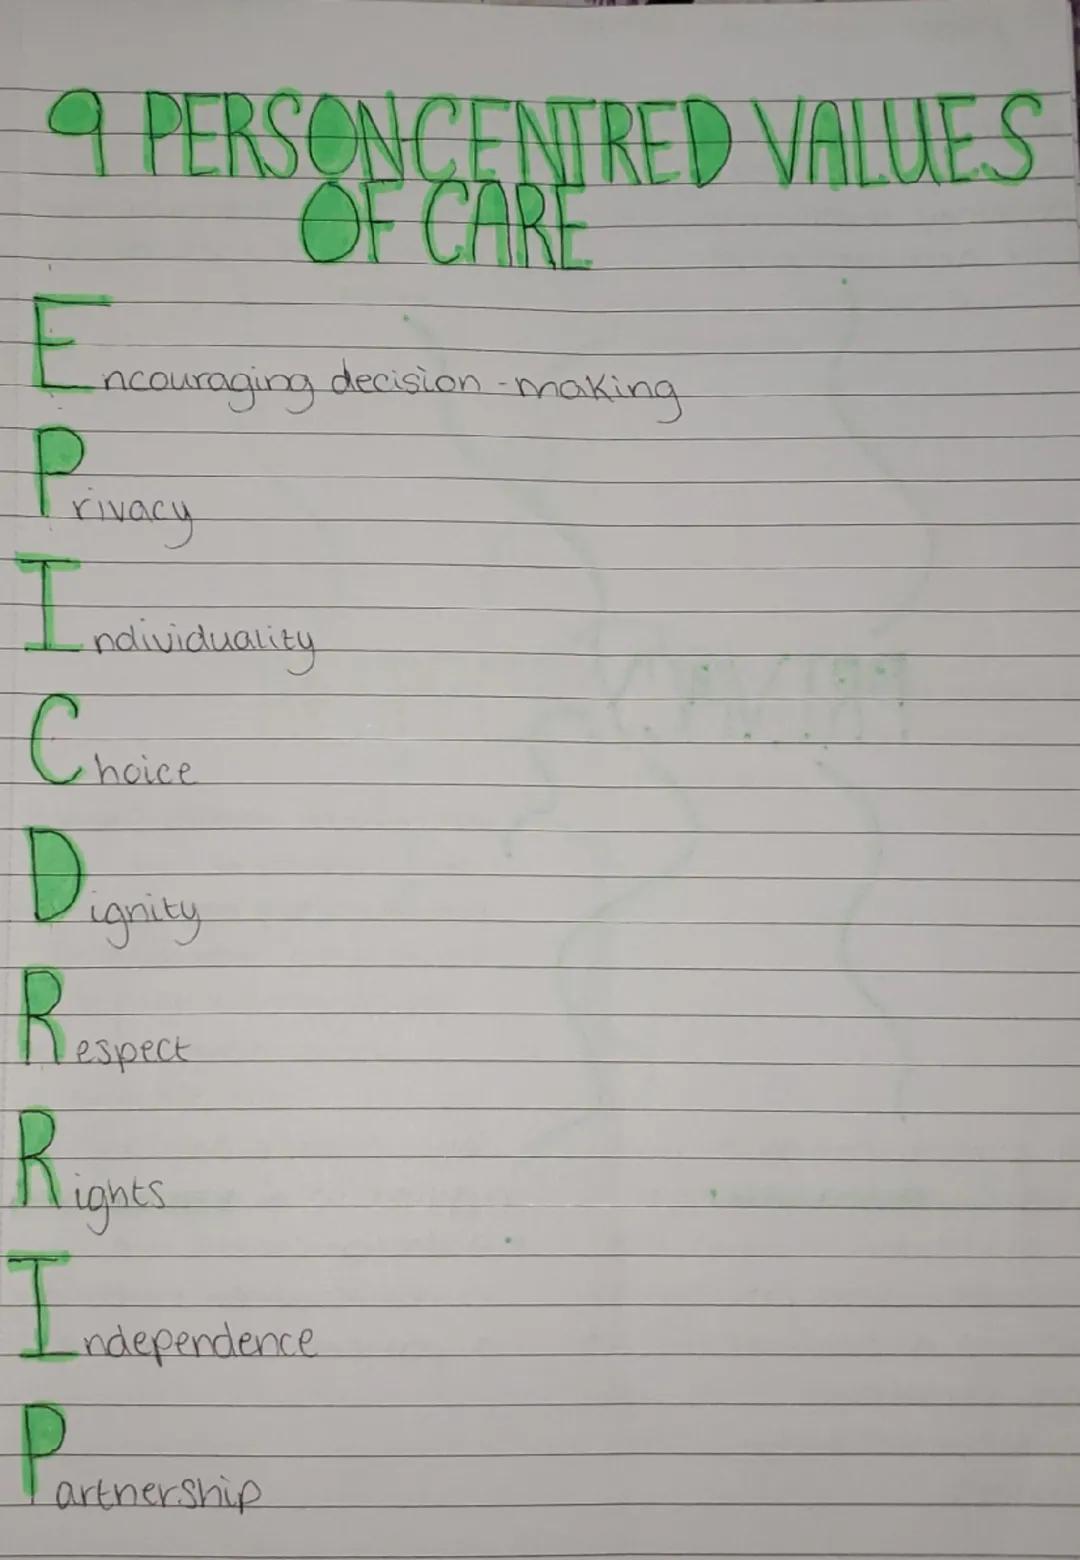 9 PERSON CENTRED VALUES
OF CARE
Encouraging decision-making
Privacy
Individuality
Choice
Dignity
Respect
Rights
Independence
Partnership